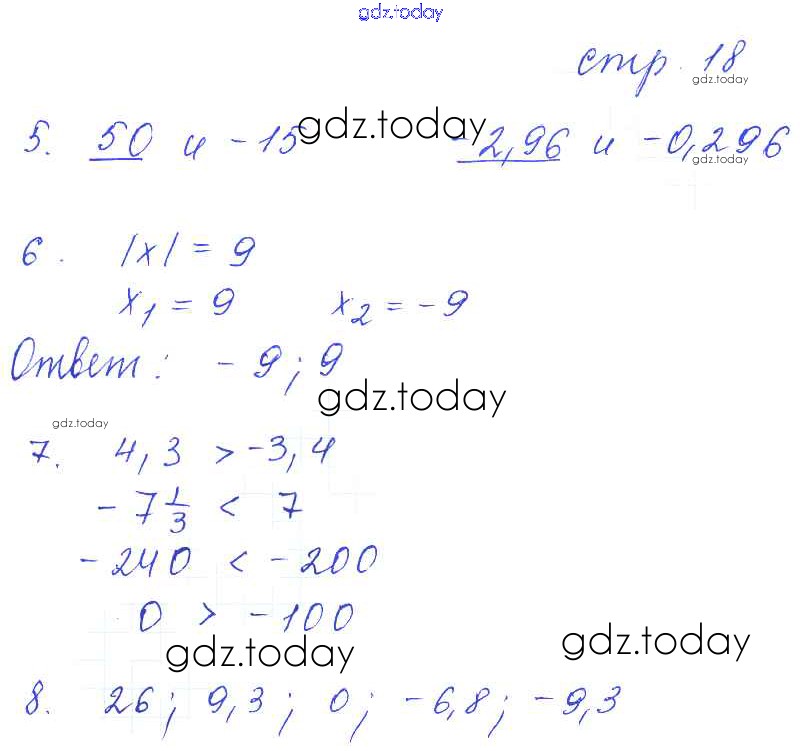 gdz.today
стр. 18
gdz.today
5. 50 и -15 gdz.today -2,96 и -0,296
gdz.today
6. |x| = 9
x₁ = 9 x₂ = -9
Ответ: -9; 9
gdz.today
gdz.today
7. 4,3 > -3,4
-7 1/3 < 7
-240 < -200
0 > -100
gdz.today gdz.today
8. 26; 9,3; 0; -6,8; -9,3